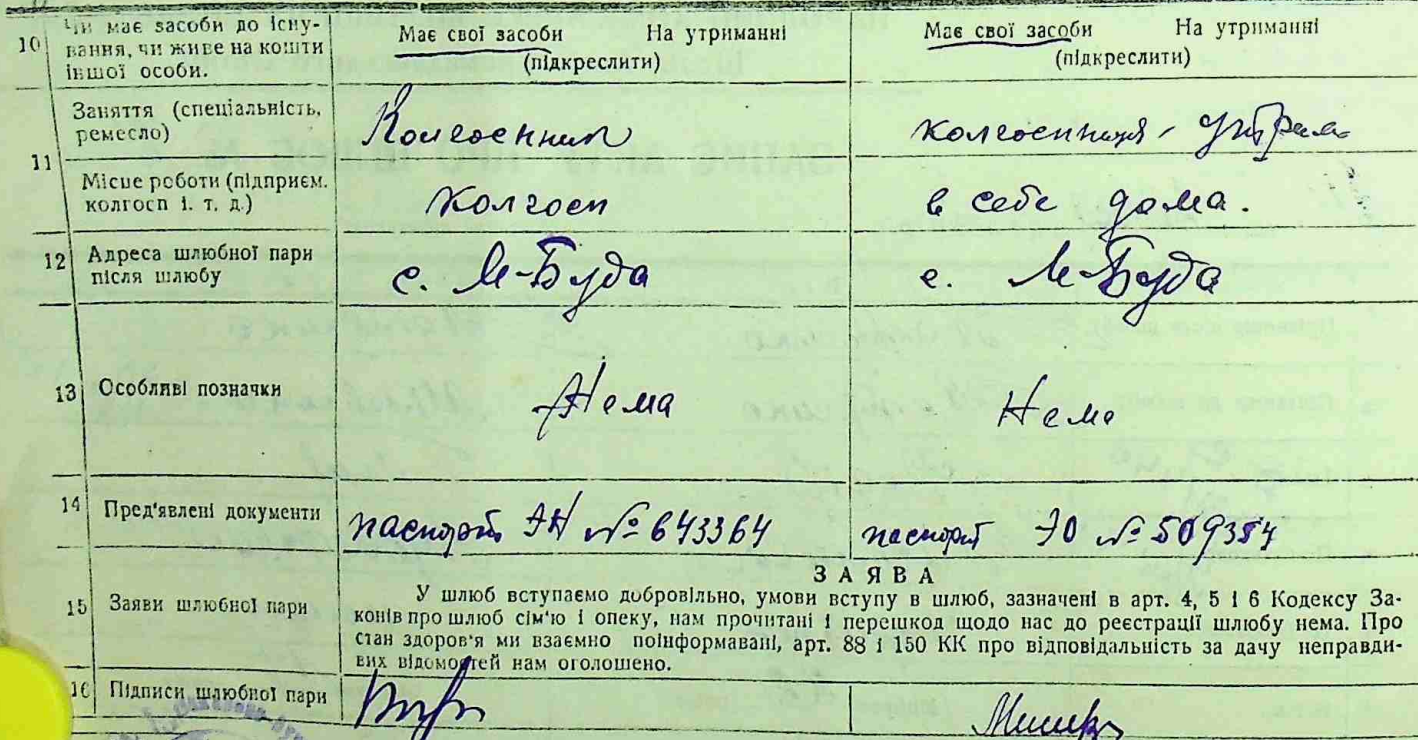 10 Чи має засоби до існу-
вання, чи живе на кошти
іншої особи.
Має свої засоби На утриманні
(підкреслити)
Має свої засоби На утриманні
(підкреслити)
11 Заняття (спеціальність,
ремесло)
Колгоспник
колгоспниця
Місце роботи (підприєм.
колгосп і. т. д.)
Колгосп
в себе дома.
12 Адреса шлюбної пари
після шлюбу
с. М-Буда
с. М-Буда
13 Особливі позначки
Нема
Нема
14 Пред'явлені документи
паспорт ЭН № 643364
паспорт ЭО № 509384
15 Заяви шлюбної пари
ЗАЯВА
У шлюб вступаємо добровільно, умови вступу в шлюб, зазначені в арт. 4, 5 і 6 Кодексу За-
конів про шлюб сім'ю і опеку, нам прочитані і перешкод щодо нас до реєстрації шлюбу нема. Про
стан здоров'я ми взаємно поінформавані, арт. 88 і 150 КК про відповідальність за дачу неправди-
вих відомостей нам оголошено.
16 Підписи шлюбної пари